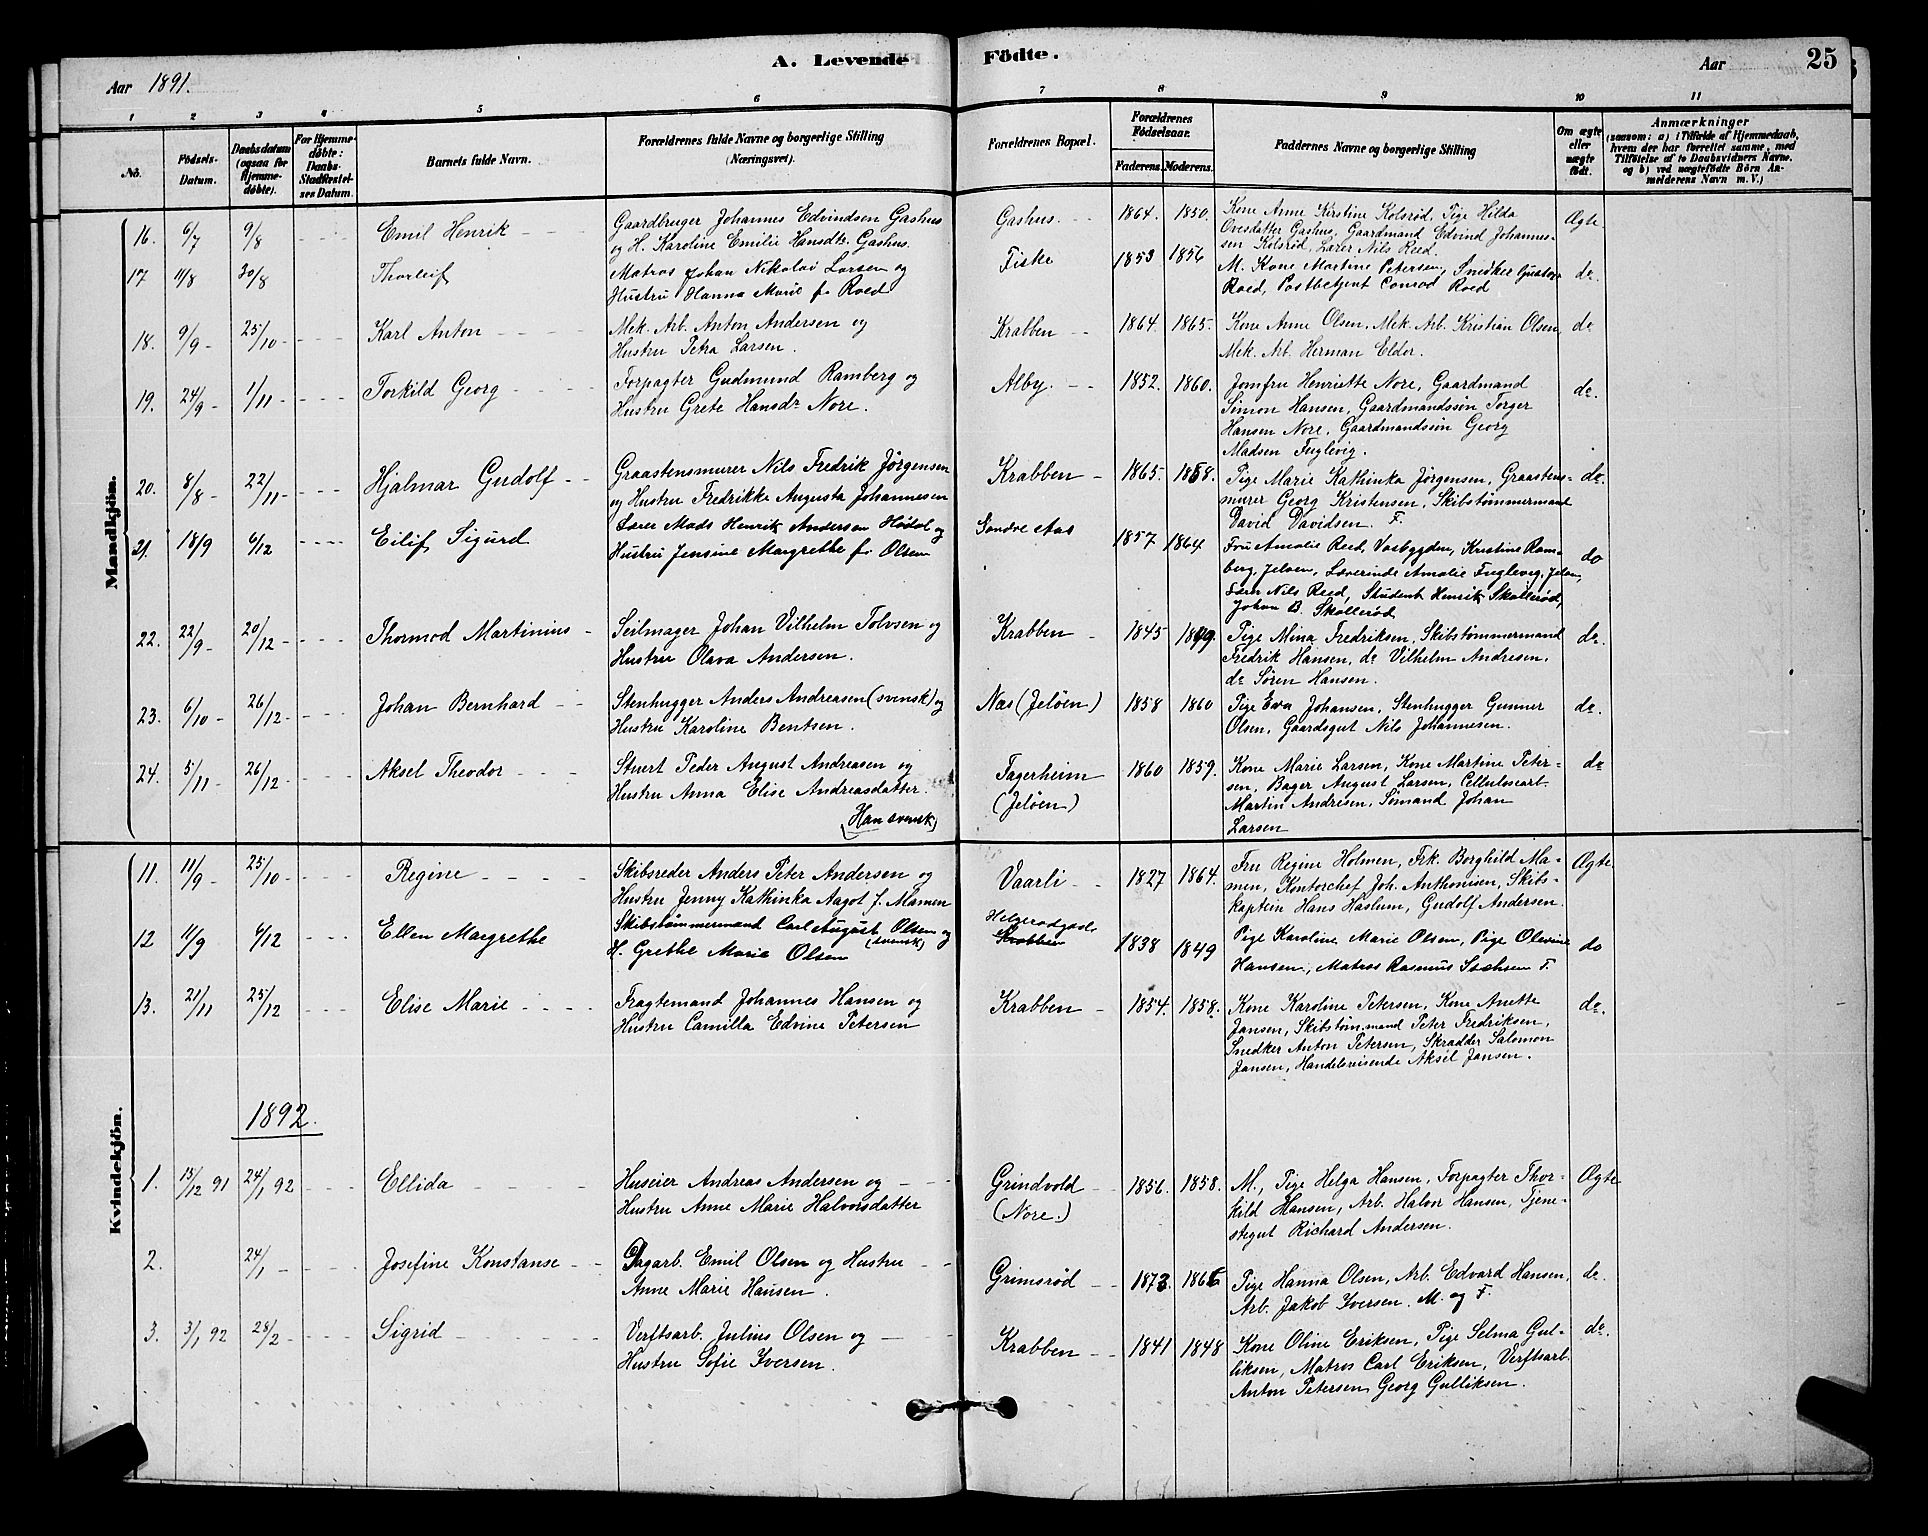 A. Levende Födte.
Aar 1891.
Aar
25
1 2 3 4 5 6 7 8 9 10 11
No.
Födsels-Datum.
Daabsdatum (ogsaa for Hjemmedøbte).
For Hjemmedøbte: Daabs-Stadfestelses Datum.
Barnets fulde Navn.
Forældrenes fulde Navne og borgerlige Stilling (Næringsvei).
Forældrenes Bopæl.
Forældrenes Födselsaar.
Faderens. Moderens.
Faddernes Navne og borgerlige Stilling
Om ægte eller uægte födt.
Anmærkninger
(saasom: a) i Tilfælde af Hjemmedaab, hvem der har forrettet samme, med Tilföielse af to Daabsvidners Navne, og b) ved uægtefödte Börn Anmelderens Navn m. V.)
Mandkjön.
16. 6/7 9/8 Emil Henrik
Gaardbruger Johannes Edvindsen Gashus
og H. Karoline Emilie Hansdtr. Gashus.
Gashus. 1864. 1850.
Kone Anne Kirstine Kolsrød, Pige Hilda
Ovesdatter Gashus, Gaardmand Edvind Johannes-
sen Kolsrød, Lærer Nils Reed.
Ægte
17 11/8 30/8 Thorleif
Matros Johan Nikolai Larsen og
Hustru Hanna Marie f. Roed
Fiske 1853 1856
M. Kone Martine Petersen, Snedker Gustav
Roed, Postbetjent Conrad Roed
do.
18. 9/9 25/10 Karl Anton
Mek. Arb. Anton Andersen og
Hustru Petra Larsen.
Krabben 1864. 1865.
Kone Anne Olsen, Mek. Arb. Kristian Olsen,
Mek. Arb. Herman Eldor.
do
19. 24/9 1/11 Torkild Georg
Forpagter Gudmund Ramberg og
Hustru Grete Hansdr Nore.
Alby. 1852. 1860.
Jomfru Henriette Nore, Gaardmand
Simon Hansen, Gaardmandssøn Torger
Hansen Nore, Gaardmandssøn Georg
Madsen Fuglevig.
do.
20. 8/8 22/11 Hjalmar Gudolf
Graastensmurer Nils Fredrik Jörgensen
og Hustru Fredrikke Augusta Johannesen
Krabben 1865. 1868.
Pige Marie Kathinka Jørgensen, Graastens-
murer Georg Kristensen, Skibstømmermand
David Davidsen. F.
do.
21. 18/9 6/12 Eilif Sigurd
Lærer Mads Henrik Andersen Hödal og
Hustru Jensine Margrethe f. Olsen
Söndre Aas 1857 1864
Fru Amalie Reed, Vasbygden, Kristine Ram-
berg, Jeløen, Lærerinde Amalie Fuglevig, Jeløen,
Færn Nils Reed, Student Henrik Skøllerød,
Johan B. Skøllerød
do
22. 22/9 20/12 Thormod Martinius
Seilmager Johan Vilhelm Tolvsen og
Hustru Olava Andersen.
Krabben 1845 1849.
Pige Mina Fredriksen, Skibstømmermand
Fredrik Hansen, do Vilhelm Andresen,
do Søren Hansen.
do.
23. 6/10 26/12 Johan Bernhard
Stenhugger Anders Andreasen (svensk) og
Hustru Karoline Bentsen.
Nas (Jeløen) 1858 1860
Pige Eva Johansen, Stenhugger Gunner
Olsen, Gaardsgut Nils Johannesen.
do.
24. 5/11 26/12 Aksel Theodor
Stuert Peder August Andreasen og
Hustru Anna Elise Andreasdatter.
(Han svensk)
Fagerheim
(Jeløen)
1860 1859.
Kone Marie Larsen, Kone Martine Peter-
sen, Bager August Larsen, Cellulosearb.
Martin Andresen, Sømand Johan
Larsen
do
Kvindekjön.
11. 11/9 25/10 Regine
Skibsreder Anders Peter Andersen og
Hustru Jenny Kathinka Aagot f. Mamen
Vaarli 1827 1864.
Fru Regine Holmen, Frk. Borghild Ma-
men, Kontorchef Joh. Anthonisen, Skibs-
kaptein Hans Haslum, Gudolf Andersen.
Ægte
12 11/9 6/12 Ellen Margrethe
Skibstømmermand Carl August Olsen og
(svensk)
H. Grethe Marie Olsen
Krabben 1838 1849
Pige Karoline Marie Olsen, Pige Olevine
Hansen, Matros Rasmus Isachsen F.
do
13. 21/11 25/12 Elise Marie
Fragtemand Johannes Hansen og
Hustru Camilla Edvine Petersen
Krabben 1854. 1858.
Kone Karoline Petersen, Kone Anette
Jansen, Skibstøm.mand Peter Fredriksen,
Snedker Anton Petersen, Skrædder Salomon
Jansen, Handelsreisende Aksel Jansen.
do.
1892.
1. 13/12 91 24/1 92 Ellida
Huseier Andreas Andersen og
Hustru Anne Marie Halvorsdatter
Grindvold
(Nore.)
1856. 1858.
M., Pige Helga Hansen, Forpagter Thor-
kild Hansen, Arb. Halvor Hansen, Tjene-
stegut Richard Andersen.
Ægte
2. 24/1 Josefine Konstanse
Dagarb. Emil Olsen og Hustru
Anne Marie Hansen.
Grimsrød 1873. 1866
Pige Hanna Olsen, Arb. Edvard Hansen,
Arb. Jakob Iversen. M. og F.
do.
3. 3/1 92 28/2 Sigrid
Verftsarb. Julius Olsen og
Hustru Sofie Iversen.
Krabben 1841 1848
Kone Oline Eriksen, Pige Selma Gul-
liksen, Matros Carl Eriksen, Verftsarb.
Anton Petersen, Georg Gulliksen.
do.